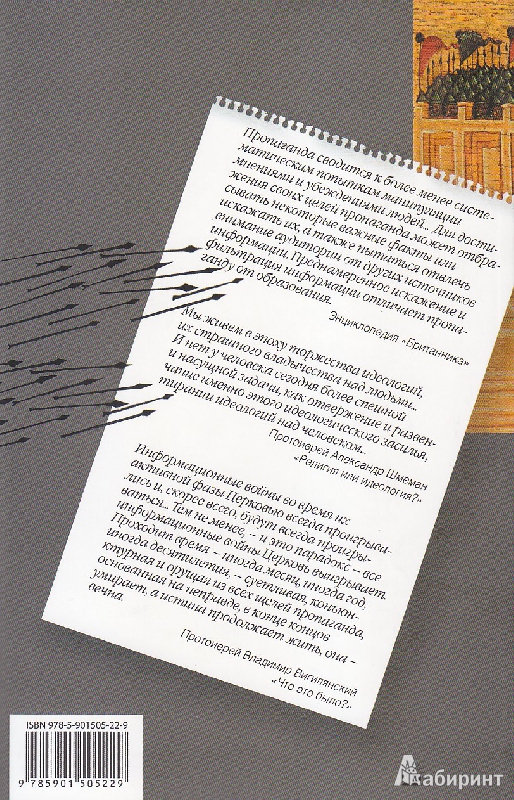 Пропаганда сводится к более менее систе-
матическим попыткам манипуляции
мнениями и убеждениями людей... Для дости-
жения своих целей пропаганда может отбра-
сывать некоторые важные факты или
искажать их, а также пытаться отвлечь
внимание аудитории от других источников
информации. Преднамеренное искажение и
фильтрация информации отличает пропа-
ганду от образования.
Энциклопедия «Британника»
Мы живем в эпоху торжества идеологий,
их страшного владычества над людьми...
И нет у человека сегодня более спешной
и насущной задачи, как отвержение и развен-
чание именно этого идеологического засилья,
тирании идеологий над человеком...
Протоиерей Александр Шмеман
«Религия или идеология?»
Информационные войны во время их
активной фазы Церковью всегда проигрыва-
лись и, скорее всего, будут всегда проигры-
ваться... Тем не менее, -- и это парадокс -- все
информационные войны Церковь выигрывает.
Проходит время -- иногда месяц, иногда год,
иногда десятилетия, -- суетливая, конъюн-
ктурная и орущая из всех щелей пропаганда,
основанная на неправде, в конце концов
умирает, а истина продолжает жить, она –
вечна.
Протоиерей Владимир Вигилянский
«Что это было?»
ISBN 978-5-901505-22-9
9 785901 505229
Лабиринт